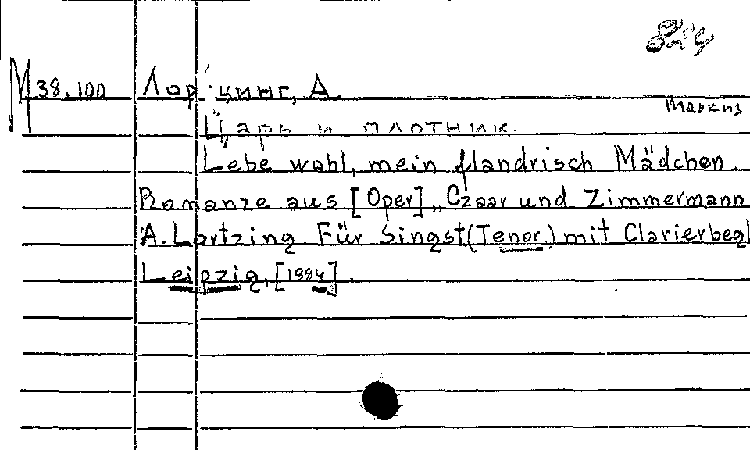 М 38.100 Лорцинг, А.
Маркиз
Царь и плотник.
Lebe wohl, mein flandrisch Mädchen.
Romanze aus [Oper] „Czaar und Zimmermann
A. Lortzing. Für Singst(Tenor) mit Clavierbegl
Leipzig, [1884].